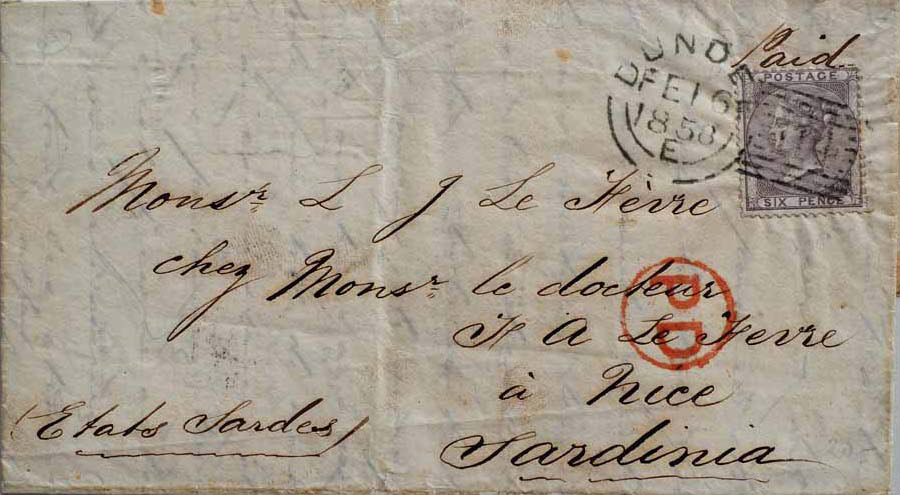 Paid
DUNDEE
FE 16
1858
E
POSTAGE
SIX PENCE
Monsr. L J Le Fèvre
chez Monsr. le docteur
PD
H A Le Fevre
à Nice
(Etats Sardes)
Sardinia